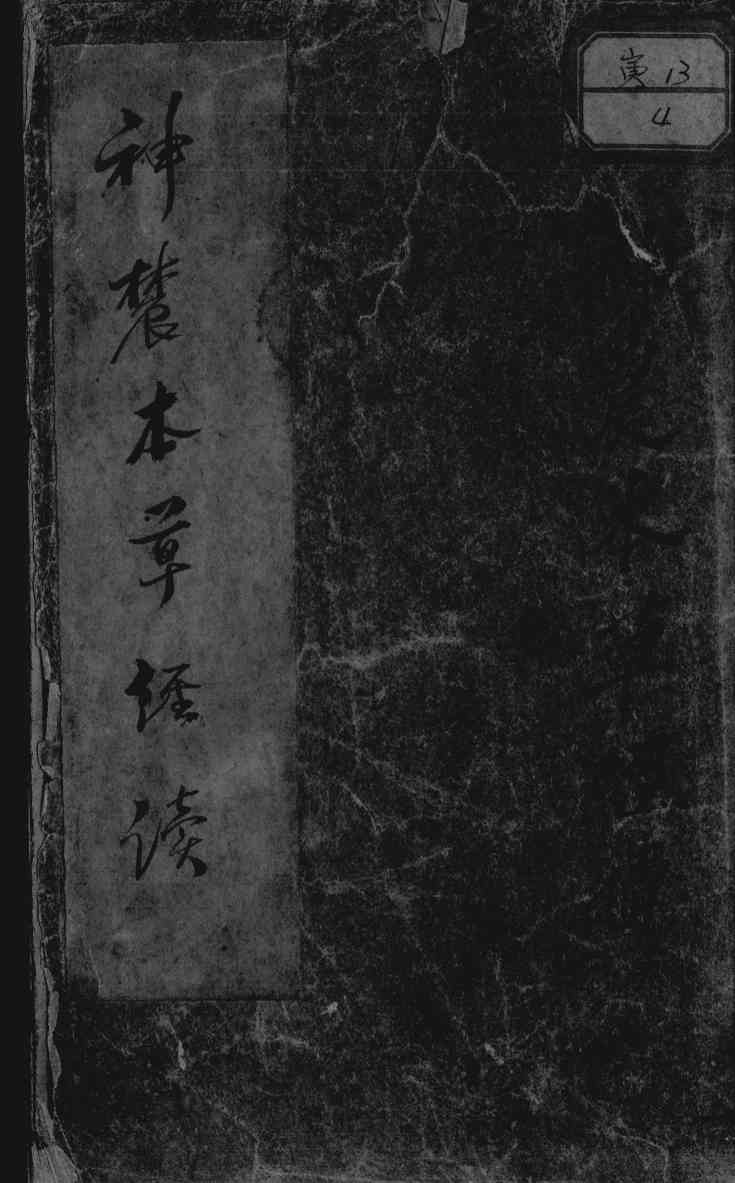 神農本草経读
寅 13
4